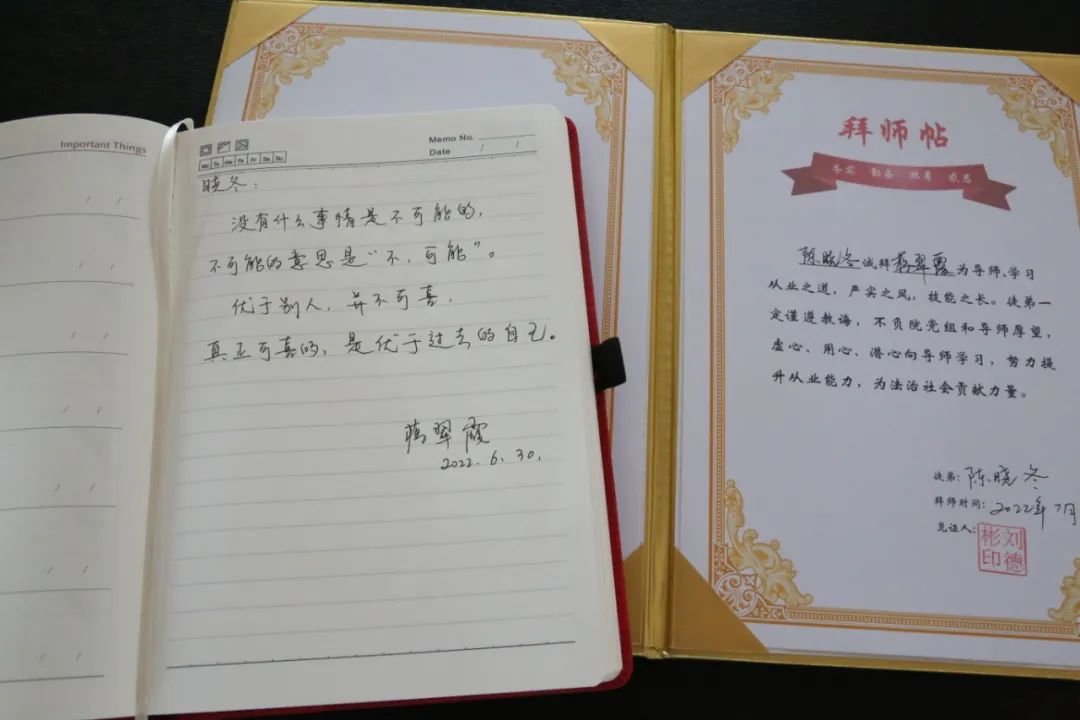 Important Things
Memo No.
Date / /
Mo Tu We Th Fr Sa Su
晓冬：
没有什么事情是不可能的，
不可能的意思是“不，可能”。
优于别人，并不可喜，
真正可喜的，是优于过去的自己。
蒋翠霞
2022.6.30.
拜师帖
务实 勤奋 执着 感恩
陈晓冬诚拜蒋翠霞为导师，学习
从业之道，严实之风，技能之长。徒弟一
定谨遵教诲，不负院党组和导师厚望，
虚心、用心、潜心向导师学习，努力提
升从业能力，为法治社会贡献力量。
徒弟：陈晓冬
拜师时间：2022年7月
见证人：
刘德彬印